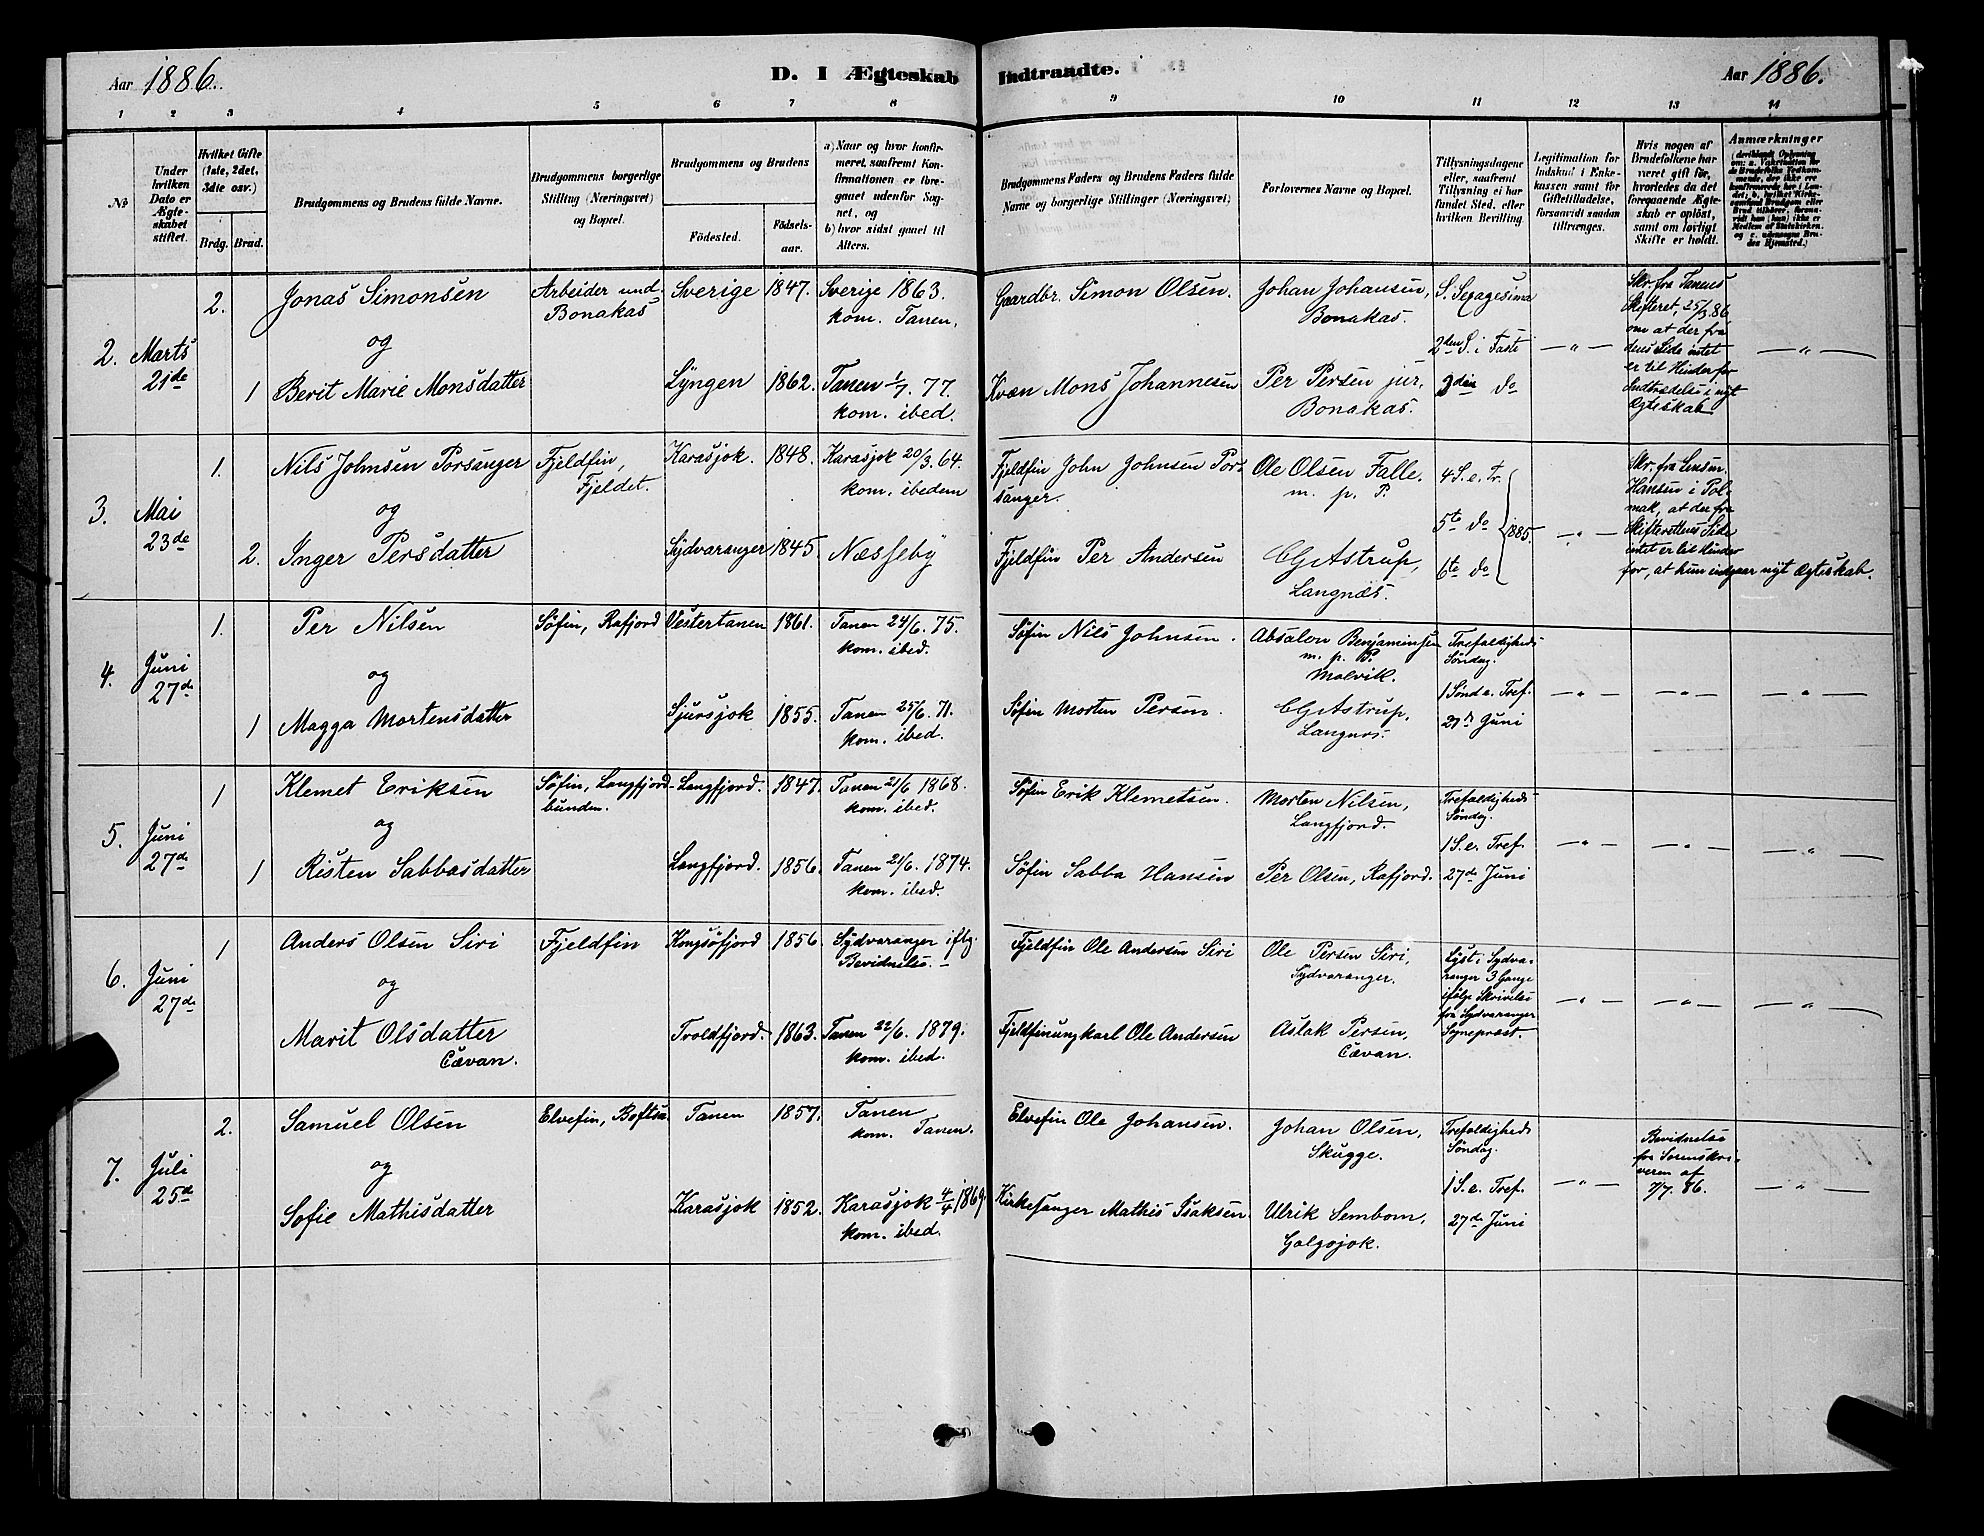 Aar 1886.
D. I Ægteskab Indtraadte.
Aar 1886.
1 2 3 4 5 6 7 8 9 10 11 12 13 14
No
Under hvilken Dato er Ægteskabet stiftet.
Hvilket Gifte (1ste, 2det, 3die osv.)
Brdg. Brud.
Brudgommens og Brudens fulde Navne.
Brudgommens borgerlige Stilling (Næringsvei) og Bopæl.
Brudgommens og Brudens
Födested.
Födselsaar.
a) Naar og hvor konfirmeret, saafremt Konfirmationen er foregaaet udenfor Sognet, og
b) hvor sidst gaaet til Alters.
Brudgommens Faders og Brudens Faders fulde Navne og borgerlige Stillinger (Næringsvei)
Forlovernes Navne og Bopæl.
Tillysningsdagene eller, saafremt Tillysning ei har fundet Sted, efter hvilken Bevilling.
Legitimation for Indskud i Enkekassen samt for Giftetilladelse, forsaavidt saadan tiltrænges.
Hvis nogen af Brudefolkene har været gift før, hvorledes da det foregaaende Ægteskab er opløst, samt om lovligt Skifte er holdt.
Anmærkninger
2. Marts 21de
2. Jonas Simonsen
Arbeider und. Bonakas
Sverige 1847. Sverige 1863. kom. Tanen.
Gaardbr. Simon Olsen.
Johan Johansen, Bonakas.
S. Sexagesima
2den S. i Faste
3die do
Skr. fra Tanens Skifteret, 25/3 86 om at der fra dens Side intet er til Hinder for Indtrædelse i nyt Ægteskab
og
1 Berit Marie Monsdatter
Lyngen 1862. Tanen 1/7. 77. kom. ibed.
Kvæn Mons Johannesen
Per Persen jur, Bonakas.
3. Mai 23de
1. Nils Johnsen Porsanger
Fjeldfin, Fjeldet.
Karasjok. 1848. Karasjok 20/3. 64. kom. ibedem
Fjeldfin John Johnsen Porsanger.
Ole Olsen Falle. m. p. P.
4 S. e. Tr.
5te do
6te do
1885.
Skr. fra Lensm. Hansen i Polmak, at der fra Skifterettens Side intet er til Hinder for, at hun indgaar nyt Ægteskab.
og
2. Inger Persdatter
Sydvaranger 1845. Næsseby
Fjeldfin Per Andersen
CG Astrup, Langnæs.
4. Juni 27de
1. Per Nilsen
Søfin, Rafjord
Vestertanen 1861. Tanen 24/6. 75. kom. ibed.
Søfin Nils Johnsen.
Absalon Benjaminsen m. p. P. Molvik.
Trefoldigheds Søndag.
1 Sønd e. Tref.
27de Juni
og
1 Magga Mortensdatter
Sjursjok 1855. Tanen 25/6. 71. kom. ibed.
Søfin Morten Persen.
CG Astrup, Langnæs.
5. Juni 27de
1 Klemet Eriksen
Søfin, Langfjordbunden.
Langfjord. 1847. Tanen 21/6 1868. kom. ibed.
Søfin Erik Klemetsen.
Morten Nilsen, Langfjord.
Trefoldigheds Søndag.
1 S. e. Tref.
27de Juni
og
1 Risten Sabbasdatter
Langfjord. 1856. Tanen 21/6. 1874. kom. ibed.
Søfin Sabba Hansen
Per Olsen, Rafjord.
6. Juni 27de
1 Anders Olsen Siri
Fjeldfin
Kongsøfjord 1856. Sydvaranger iflg. Bevidnelse.
Fjeldfin Ole Andersen Siri
Ole Persen Siri, Sydvaranger.
Lyst i Sydvaranger 3 Gange ifølge Skrivelse fra Sydvaranger Sognepræst.
og
Marit Olsdatter Cævan.
Troldfjord. 1863. Tanen 22/6. 1879. kom. ibed.
Fjeldfinungkarl Ole Andersen
Aslak Persen, Cævan.
7. Juli 25de
2. Samuel Olsen
Elvefin, Boftsa.
Tanen 1857. Tanen kom. Tanen.
Elvefin Ole Johansen.
Johan Olsen, Skugge.
Trefoldigheds Søndag.
1 S. e. Tref.
27de Juni
Bevidnelse fra Sorenskriveren af 7/7. 86.
og
Sofie Mathisdatter
Karasjok 1852. Karasjok 4/4 1869. kom. ibed.
Kirkesanger Mathis Isaksen.
Ulrik Sembom, Galgojok.